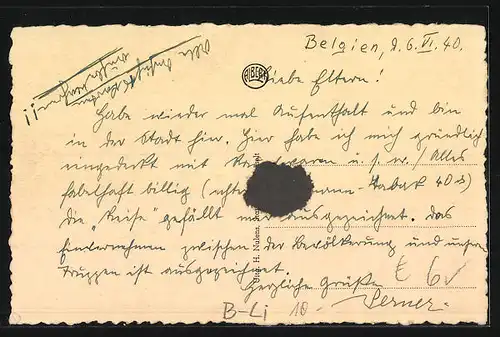 Belgien, d. 6. VI. 40.
Alle Ansichtskarten
aufbewahren!!
ALBERT
Liebe Eltern!
Habe wieder mal Aufenthalt und bin
in der Stadt hier. Hier habe ich mich gründlich
eingedeckt mit u. s. w. / Alles
fabelhaft billig ( -Tabak 40
die „Reise“ gefällt ausgezeichnet. Das
Einvernehmen zwischen der Bevölkerung und unseren
Truppen ist ausgezeichnet.
Herzliche Grüße
Werner.
H. Nulens
€ 6
B-Li 10-